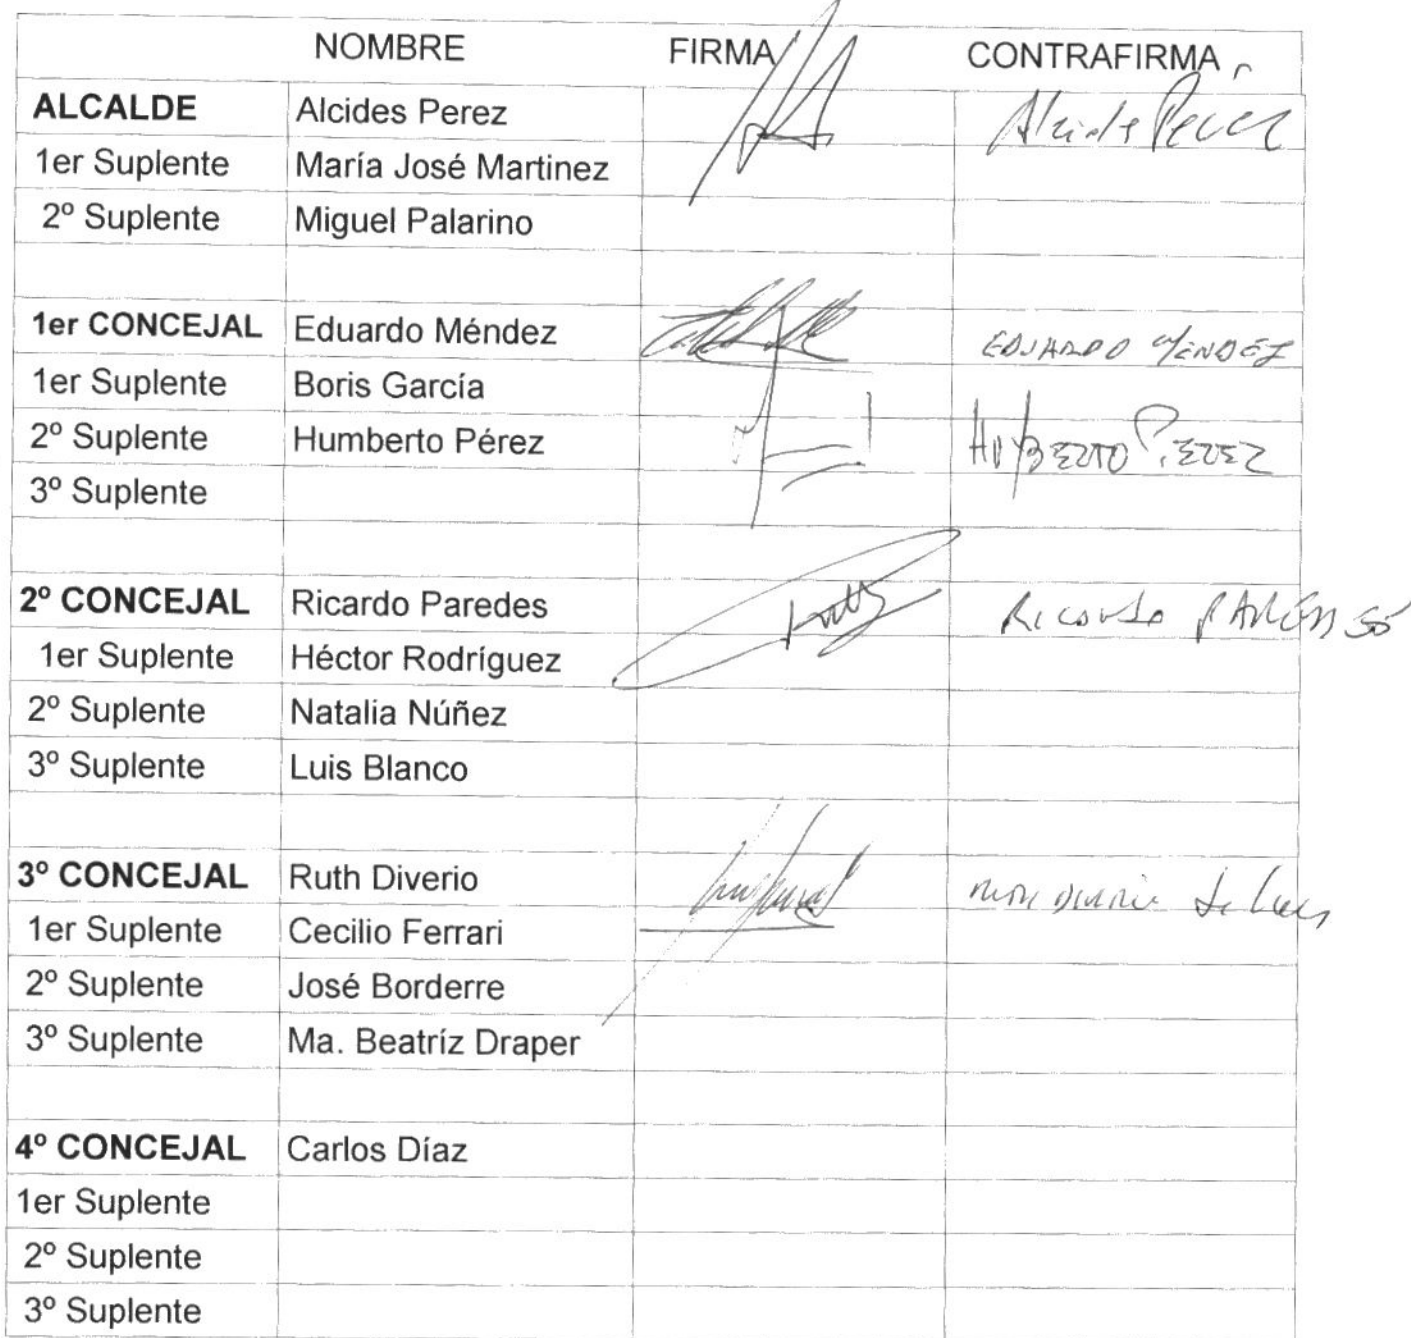 NOMBRE FIRMA CONTRAFIRMA
ALCALDE Alcides Perez Alcides Perez
1er Suplente María José Martinez
2º Suplente Miguel Palarino
1er CONCEJAL Eduardo Méndez EDUARDO MENDEZ
1er Suplente Boris García
2º Suplente Humberto Pérez HUMBERTO PEREZ
3º Suplente
2º CONCEJAL Ricardo Paredes Ricardo PAREDES
1er Suplente Héctor Rodríguez
2º Suplente Natalia Núñez
3º Suplente Luis Blanco
3º CONCEJAL Ruth Diverio
1er Suplente Cecilio Ferrari
2º Suplente José Borderre
3º Suplente Ma. Beatríz Draper
4º CONCEJAL Carlos Díaz
1er Suplente
2º Suplente
3º Suplente